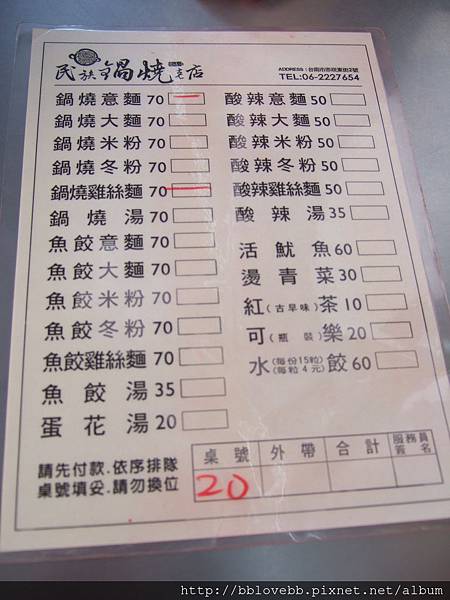 民族鍋燒老店
ADDRESS:台南市赤崁東街2號
TEL:06-2227654
鍋燒意麵 70
鍋燒大麵 70
鍋燒米粉 70
鍋燒冬粉 70
鍋燒雞絲麵 70
鍋燒湯 70
魚餃意麵 70
魚餃大麵 70
魚餃米粉 70
魚餃冬粉 70
魚餃雞絲麵 70
魚餃湯 35
蛋花湯 20
酸辣意麵 50
酸辣大麵 50
酸辣米粉 50
酸辣冬粉 50
酸辣雞絲麵 50
酸辣湯 35
活魷魚 60
燙青菜 30
紅(古早味)茶 10
可(瓶裝)樂 20
水(每份15粒)(每粒4元)餃 60
請先付款.依序排隊
桌號填妥.請勿換位
桌號 外帶 合計 服務員簽名
20
http://bblovebb.pixnet.net/album